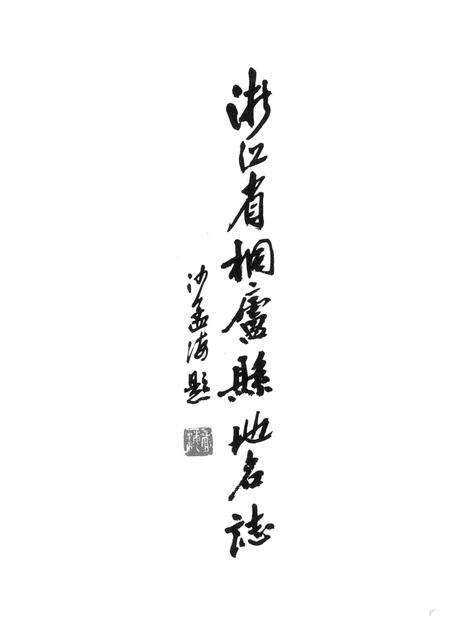 浙江省桐廬縣地名誌
沙孟海題